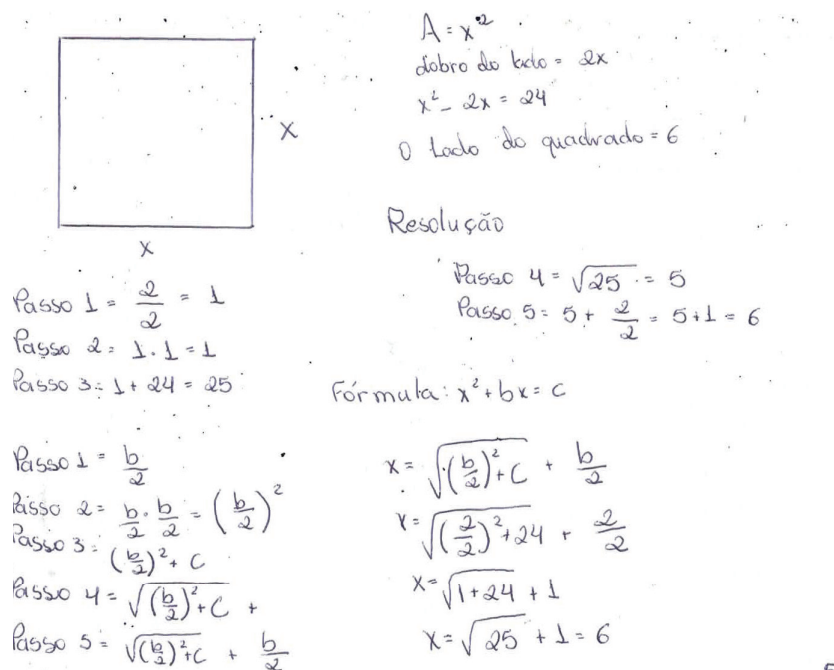 A = x²
dobro do lado = 2x
x² - 2x = 24
O Lado do quadrado = 6
x
x
Resolução
Passo 1 = 2/2 = 1
Passo 2 = 1 . 1 = 1
Passo 3 = 1 + 24 = 25
Passo 4 = √25 = 5
Passo 5 = 5 + 2/2 = 5+1 = 6
Fórmula: x² + bx = c
Passo 1 = b/2
Passo 2 = b/2 . b/2 = (b/2)²
Passo 3 = (b/2)² + C
Passo 4 = √((b/2)² + C) +
Passo 5 = √((b/2)² + C) + b/2
x = √((b/2)² + C) + b/2
x = √((2/2)² + 24) + 2/2
x = √(1 + 24) + 1
x = √25 + 1 = 6